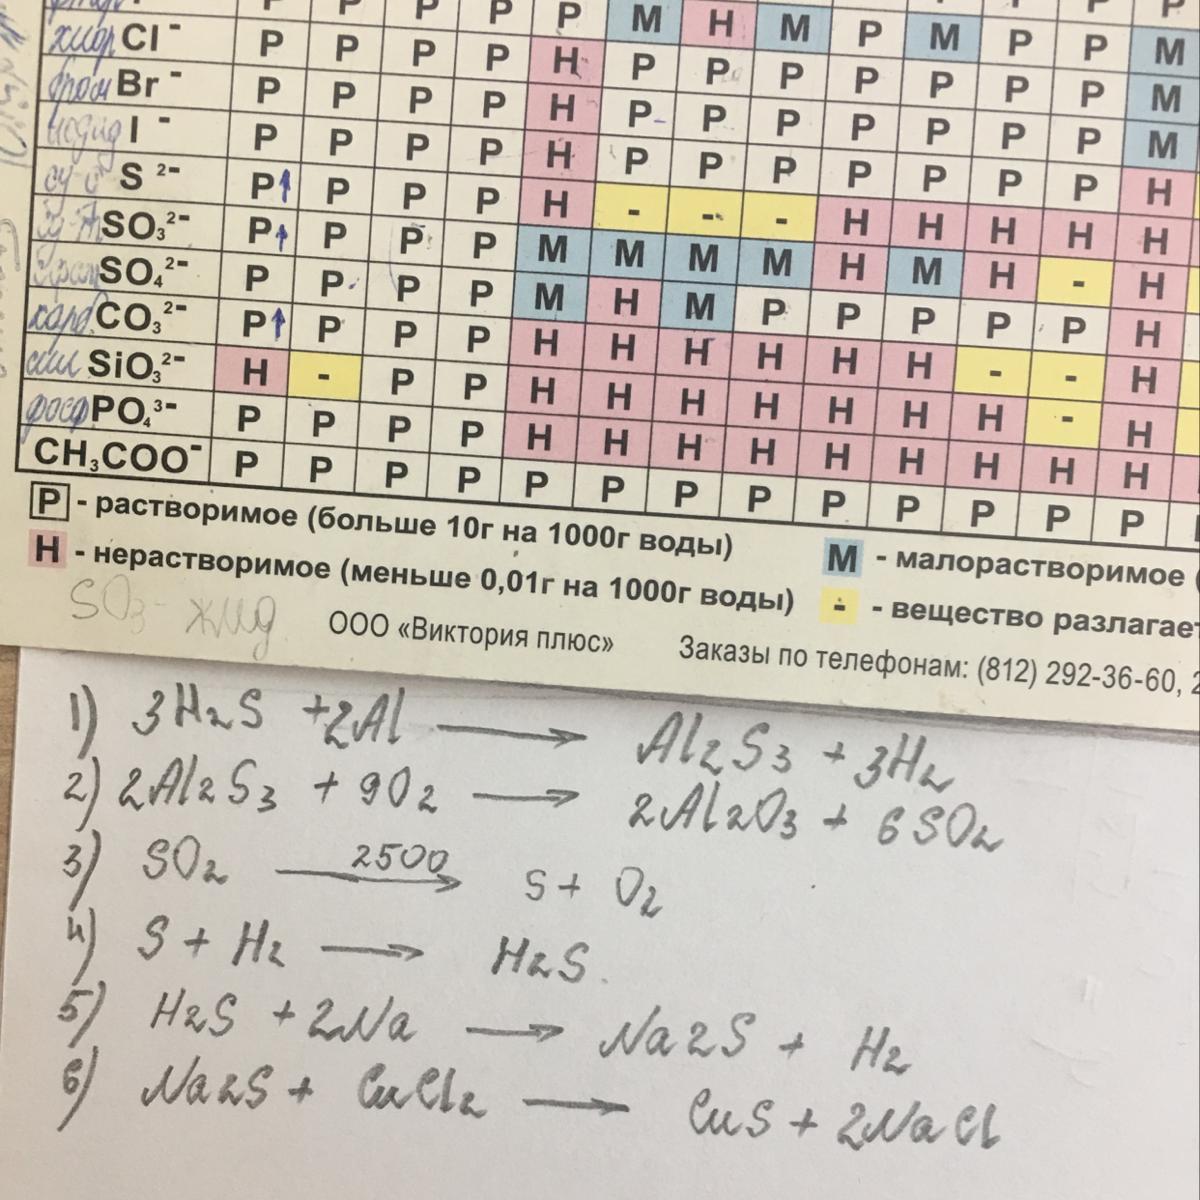 Р Р Р Р Р М Н М Р М Р Р Р
хлор Cl⁻ Р Р Р Р Н Р Р Р Р Р Р Р М
бром Br⁻ Р Р Р Р Н Р Р Р Р Р Р Р М
иодид I⁻ Р Р Р Р Н Р Р Р Р Р Р Р М
S²⁻ Р↑ Р Р Р Н - - - Н Н Н Н Н
SO₃²⁻ Р↑ Р Р Р М М М М Н М Н - Н
SO₄²⁻ Р Р Р Р М Н М Р Р Р Р Р Н
карб CO₃²⁻ Р↑ Р Р Р Н Н Н Н Н Н - - Н
сил SiO₃²⁻ Н - Р Р Н Н Н Н Н Н Н - Н
фосф PO₄³⁻ Р Р Р Р Н Н Н Н Н Н Н Н Н
CH₃COO⁻ Р Р Р Р Р Р Р Р Р Р Р Р Р
Р - растворимое (больше 10г на 1000г воды) М - малорастворимое (
Н - нерастворимое (меньше 0,01г на 1000г воды) - - вещество разлагает
SO₃ - жид
ООО «Виктория плюс» Заказы по телефонам: (812) 292-36-60, 2
1) 3H₂S + 2Al → Al₂S₃ + 3H₂
2) 2Al₂S₃ + 9O₂ → 2Al₂O₃ + 6SO₂
3) SO₂ 2500→ S + O₂
4) S + H₂ → H₂S.
5) H₂S + 2Na → Na₂S + H₂
6) Na₂S + CuCl₂ → CuS + 2NaCl